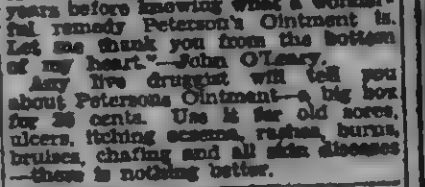 years before knowing what a wonder-
ful remedy Peterson's Ointment is.
Let me thank you from the bottom
of my heart."—John O'Leary.
Any live druggist will tell you
about Petersons Ointment—a big box
for 35 cents. Use it for old sores,
ulcers, itching eczema, rashes, burns,
bruises, chafing and all skin diseases
—there is nothing better.